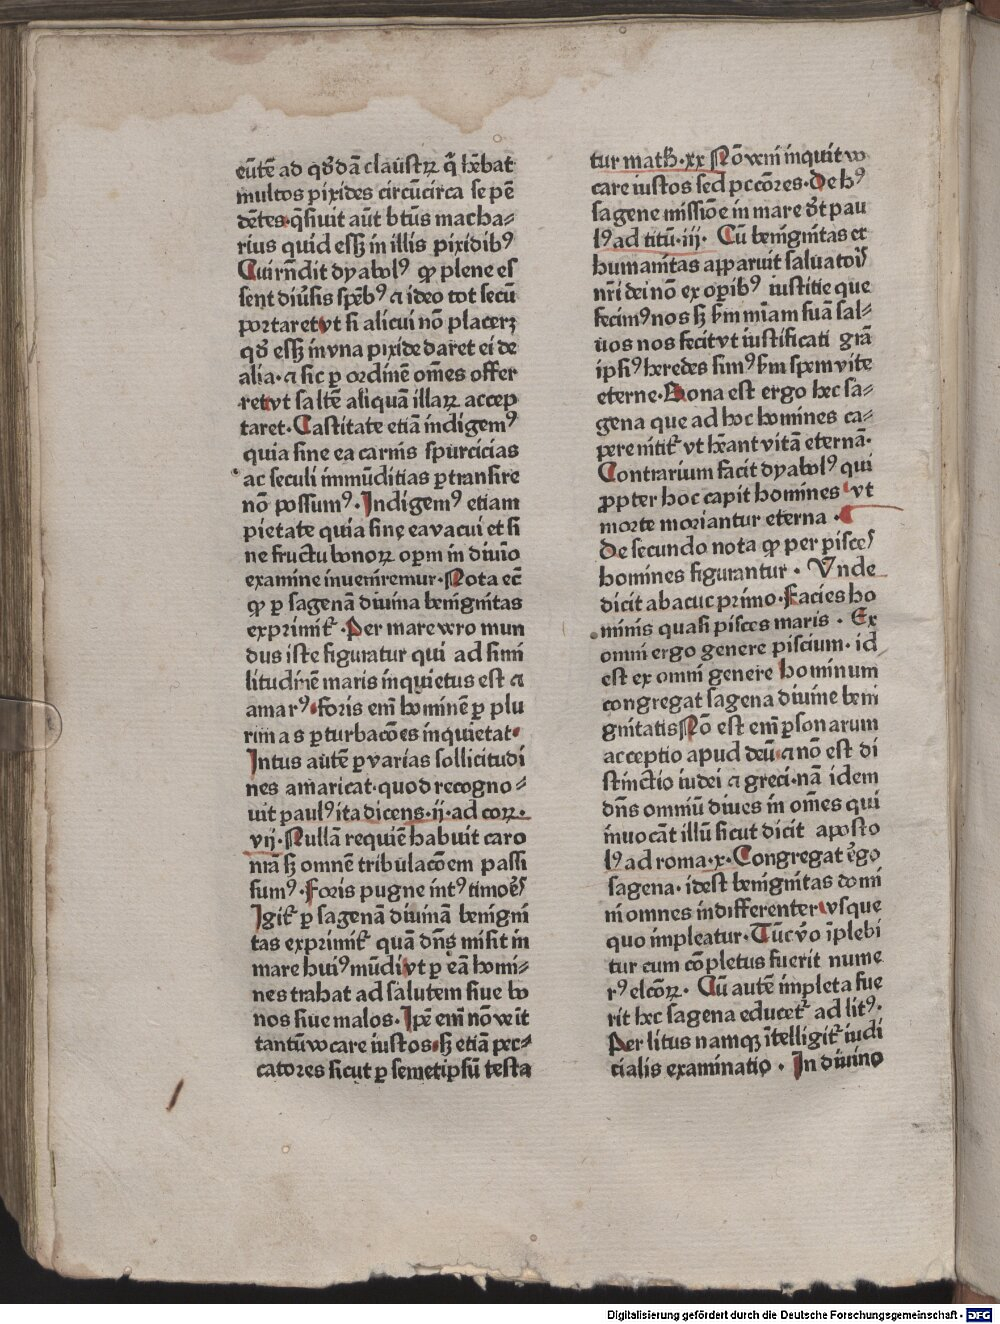 eūtē ad qđdā claustꝝ q̄ hēbat
multos pixides circūcirca se pē
dētes·q̄siuit aūt btūs macha⸗
rius quid essꝫ in illis pixidibꝰ
Cui rn̄dit dyabolꝰ ꝙ plene es
sent diūsis spēbꝰ ⁊ ideo tot secū
portaret vt si alicui nō placerꝫ
qđ essꝫ in vna pixide daret ei de
alia·⁊ sic ꝑ ordinē om̄es offer
ret vt saltē aliquā illaꝝ accep
taret·Castitate etiā indigemꝰ
quia sine ea carnis spurcicias
ac seculi immūditias ꝑtransire
nō possumꝰ·Indigemꝰ etiam
pietate quia sine ea vacui et si
ne fructu bonoꝝ opm̄ in diuīo
examine inueniremur·Nota ec̄
ꝙ ꝑ sagenā diuina benignitas
exprimit᷑·Per mare vero mun
dus iste figuratur qui ad simi
litudinē maris inquietus est ⁊
amarꝰ·foris em̄ hominē ꝑ plu
rimas ꝑturbacōes inquietat·
Intus autē ꝑ varias sollicitudi
nes amaricat·quod recogno⸗
uit paulꝰ ita dicens·ij·ad coꝝ·
vij·Nullā requiē habuit caro
nr̄a sꝫ omnē tribulacōem passi
sumꝰ·Foris pugne intꝰ timoēs
Igit᷑ ꝑ sagenā diuinā benigni
tas exprimit᷑ quā dn̄s misit in
mare huiꝰ mūdi vt ꝑ eā homi⸗
nes trahat ad salutem siue bo
nos siue malos·Ipē em̄ nō veīt
tantū vocare iustos·sꝫ etiā pec⸗
catores sicut ꝑ semetipsū testa
tur math·xx Nō veni inquit vo
care iustos sed pccōres·De hꝰ
sagene missiōe in mare dt̄ pau
lꝰ ad titū·iij· Cū benignitas et
humanitas apparuit saluatoīs
nr̄i dei nō ex oꝑibꝰ iustitie que
fecimꝰ nos sꝫ ẜm mīam suā sal⸗
uos nos fecit vt iustificati grā
ipsiꝰ heredes simꝰ ẜm spem vite
eterne·Bona est ergo hec sa⸗
gena que ad hoc homines ca⸗
pere nitit᷑ vt hēant vitā eternā·
Contrarium facit dyabolꝰ qui
ꝓpter hoc capit homines vt
morte moriantur eterna·
De secundo nota ꝙ per pisces
homines figurantur· Vnde
dicit abacuc primo·Facies ho
minis quasi pisces maris· Ex
omni ergo genere piscium·id
est ex omni genere hominum
congregat sagena diuine beni
gnitatis Nō est em̄ ꝑsonarum
acceptio apud deū·⁊ nō est di
stinctio iudei ⁊ greci·nā idem
dn̄s omniū diues in om̄es qui
inuocāt illū sicut dicit aposto
lꝰ ad roma·x·Congregat ēgo
sagena·idest benignitas domi
ni omnes indifferenter vsque
quo impleatur·Tūc v̄o īplebi
tur cum cōpletus fuerit nume
rꝰ elcōꝝ· Cū autē impleta fue
rit hec sagena educet᷑ ad litꝰ·
Per litus namqꝫ ītelligit᷑ iudi
cialis examinatio· In diuino
Digitalisierung gefördert durch die Deutsche Forschungsgemeinschaft - DFG